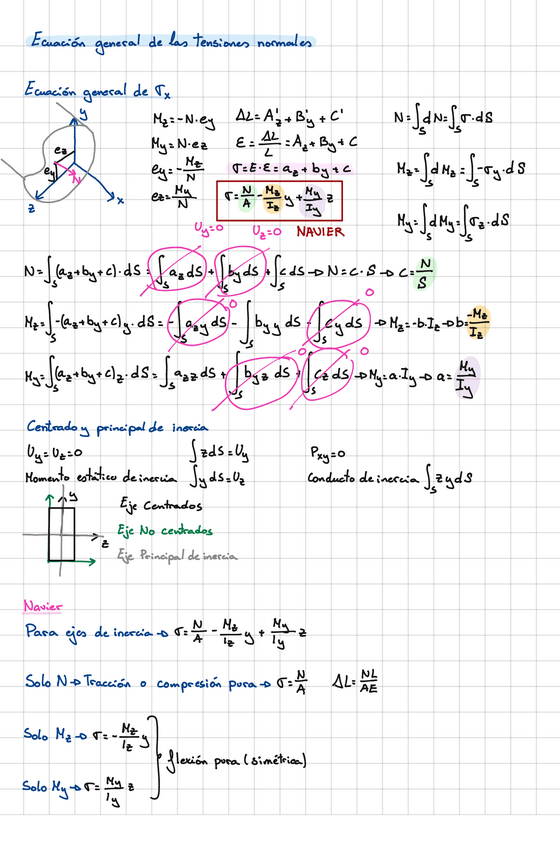 Ecuación general de las tensiones normales
Ecuación general de σx
y
ez
ey
N
z
x
Mz=-N·ey
My=N·ez
ey=-Mz/N
ez=My/N
ΔL=A'z+B'y+C'
ε=ΔL/L=Az+By+C
σ=E·ε=az+by+c
σ=N/A-Mz/Iz y+My/Iy z
Uy=0 Uz=0 NAVIER
N=∫s dN=∫s σ·dS
Mz=∫s dMz=∫s-σy·dS
My=∫s dMy=∫s σz·dS
N=∫s(az+by+c)·dS=∫s az dS+∫s by dS+∫s c dS→N=c·S→c=N/S
Mz=∫s-(az+by+c)y·dS=-∫s azy dS-∫s byy dS-∫s cy dS→Mz=-b·Iz→b=-Mz/Iz
0 0
My=∫s(az+by+c)z·dS=∫s azz dS+∫s byz dS+∫s cz dS→My=a·Iy→a=My/Iy
0 0
Centrado y principal de inercia
Uy=Uz=0 ∫zdS=Uy Pxy=0
Momento estático de inercia ∫ydS=Uz Conducto de inercia ∫s zydS
y
z
Eje Centrados
Eje No centrados
Eje Principal de inercia
Navier
Para ejes de inercia→σ=N/A-Mz/Iz y+My/Iy z
Solo N→Tracción o compresión pura→σ=N/A ΔL=NL/AE
Solo Mz→σ=-Mz/Iz y
flexión pura (simétrica)
Solo My→σ=My/Iy z